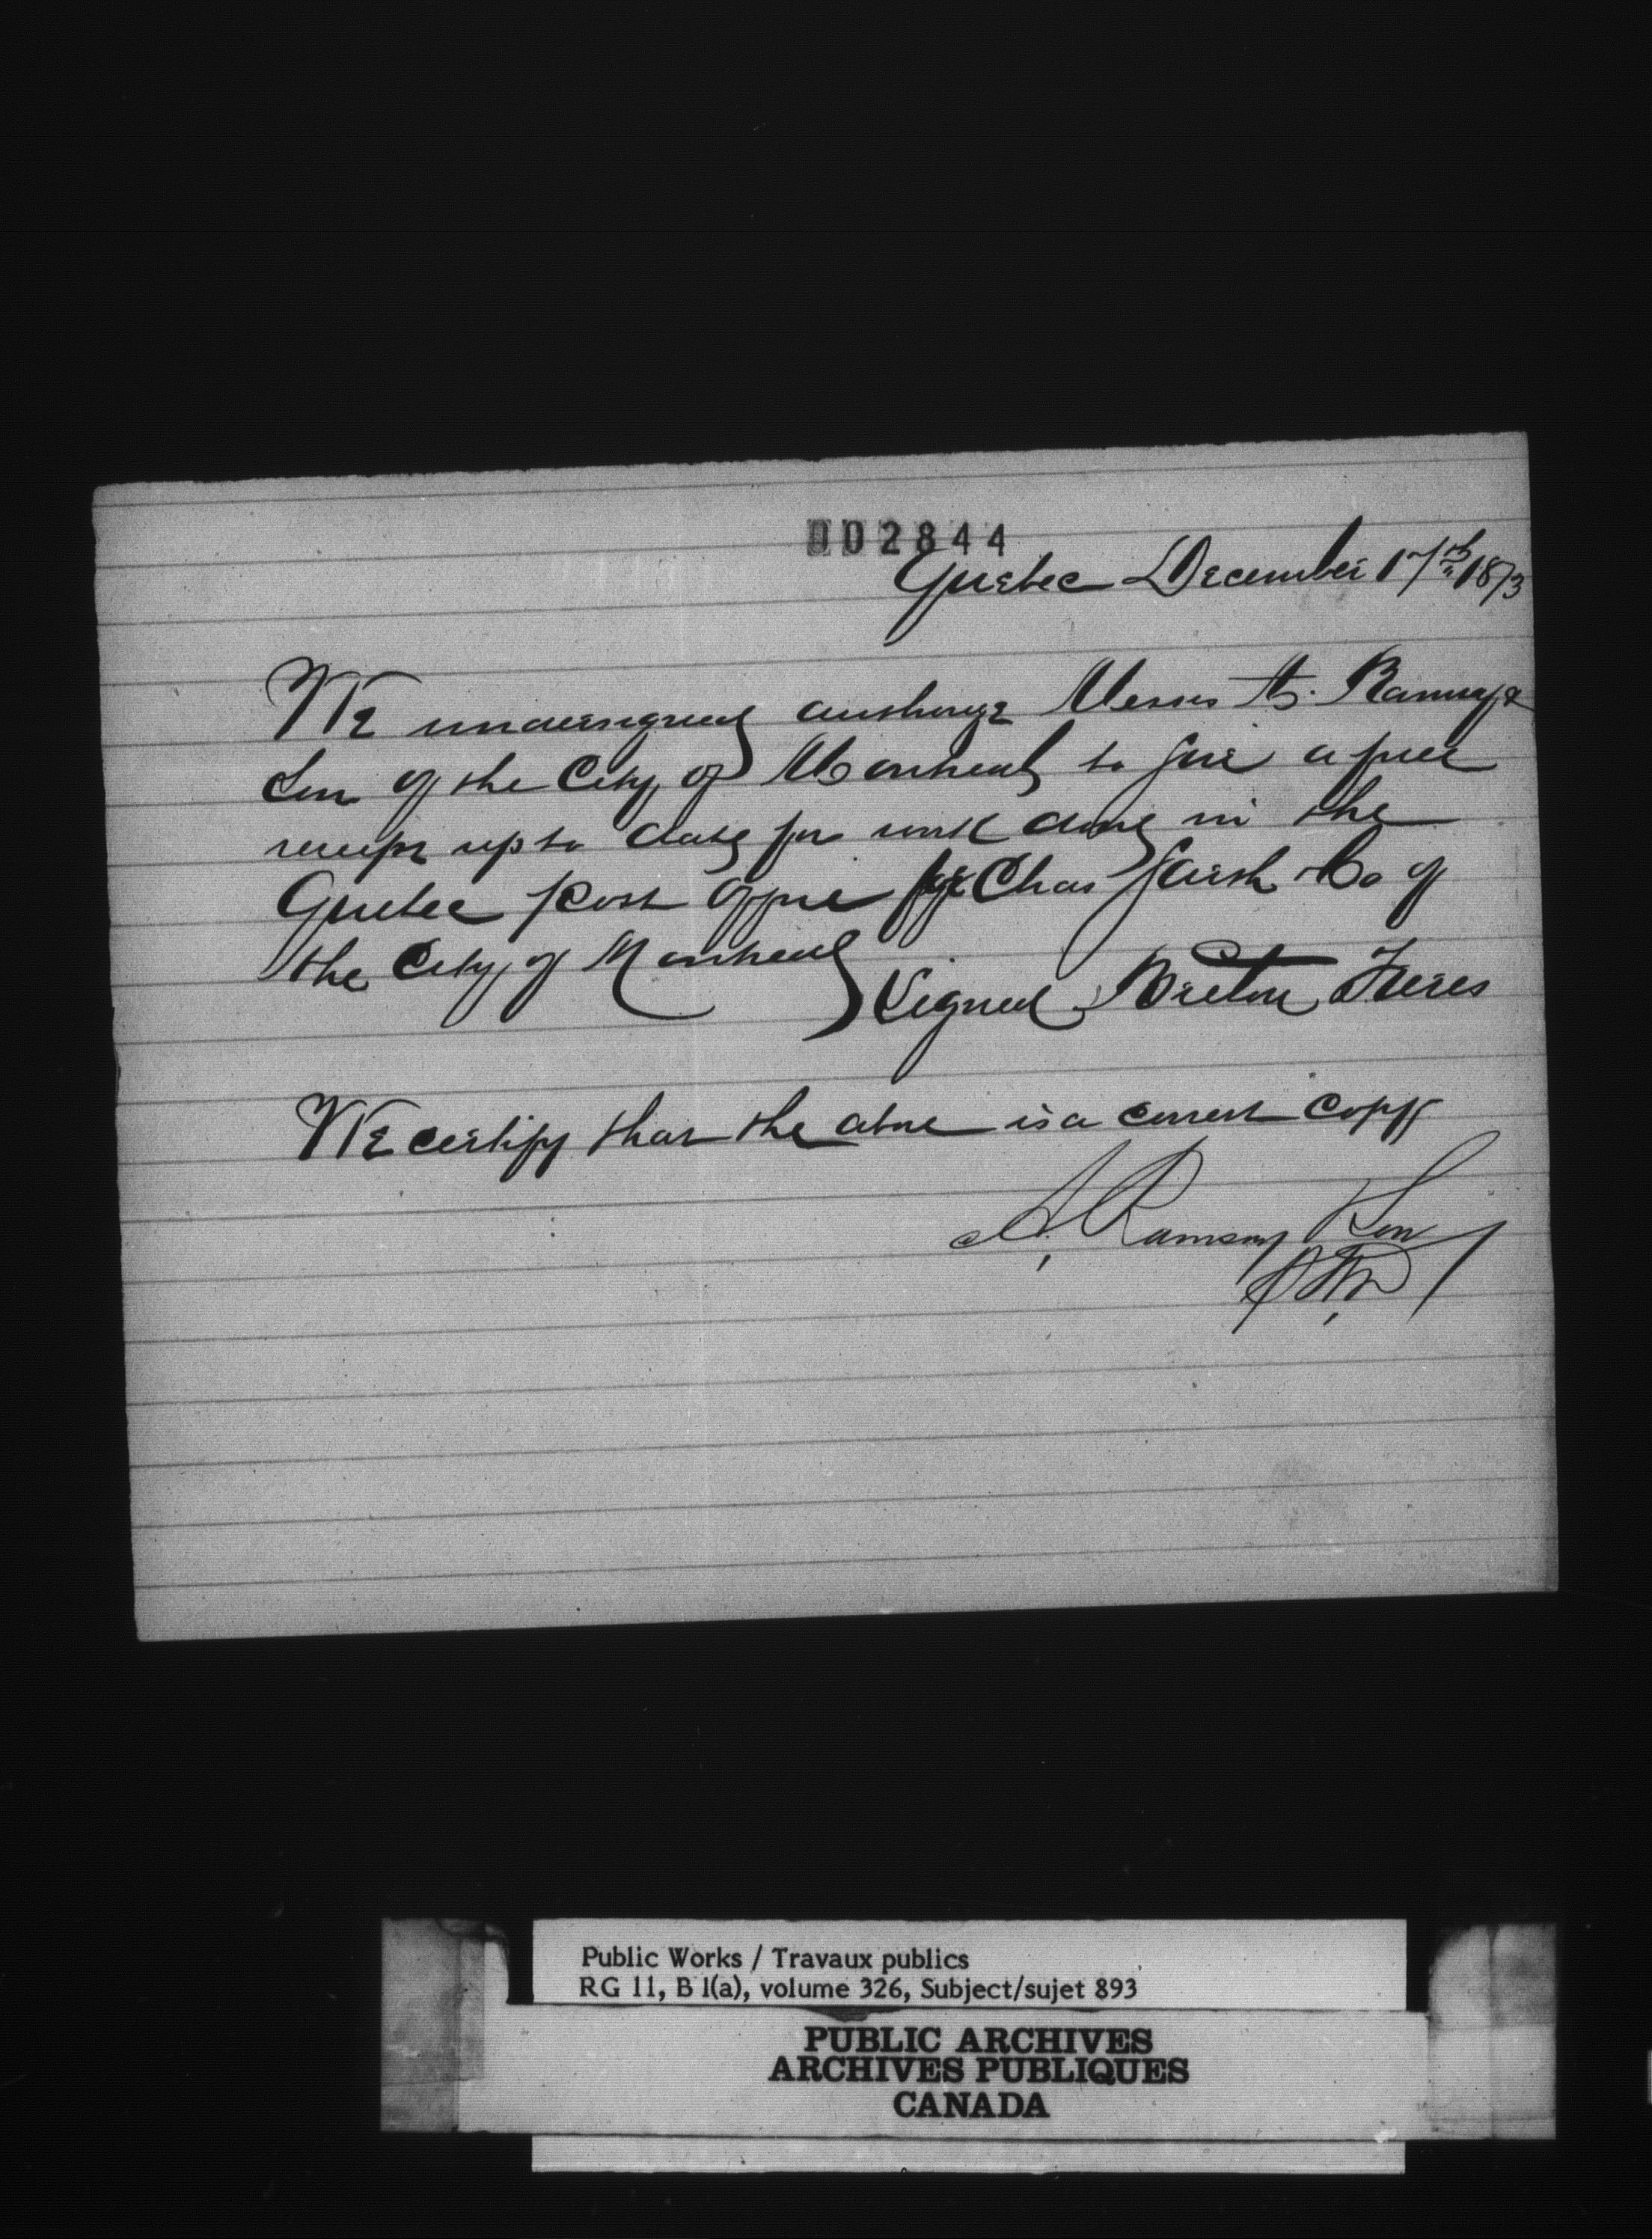 002844
Quebec December 17th 1873
We undersigned authorize Messrs A. Ramsay &
Son of the City of Montreal to give a full
receipt up to date for work done in the
Quebec Post Office for Chas Garth & Co of
the City of Montreal
Signed Breton Freres
We certify that the above is a correct copy
A. Ramsay & Son
Public Works / Travaux publics
RG 11, B 1(a), volume 326, Subject/sujet 893
PUBLIC ARCHIVES
ARCHIVES PUBLIQUES
CANADA